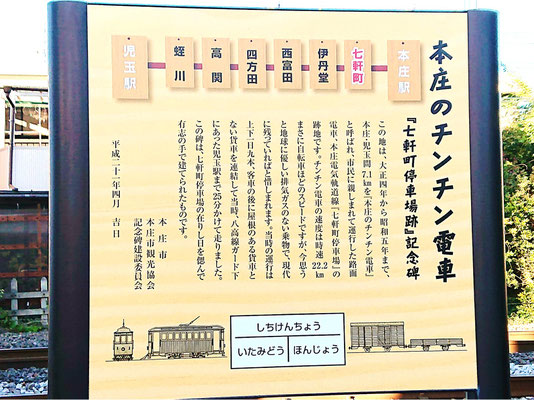 本庄のチンチン電車
『七軒町停車場跡』記念碑
本庄駅
七軒町
伊丹堂
西富田
四方田
高関
蛭川
児玉駅
この地は、大正四年から昭和五年まで、
本庄・児玉間7.1㎞を『本庄のチンチン電車』
と呼ばれ、市民に親しまれて運行した路面
電車・本庄電気軌道線『七軒町停車場』の
跡地です。チンチン電車の速度は時速22.2㎞
まさに自転車ほどのスピードですが、今思う
と地球に優しい排気ガスのない乗物で、現代
に残っていればと惜しまれます。当時の運行は
上下二日九本、客車の後に屋根のある貨車と
ない貨車を連結して当時、八高線ガード下
にあった児玉駅まで25分かけて走りました。
この碑は、七軒町停車場の在りし日を偲んで
有志の手で建てられたものです。
平成二十一年四月 吉日
本庄市
本庄市観光協会
記念碑建設委員会
しちけんちょう
いたみどう ほんじょう